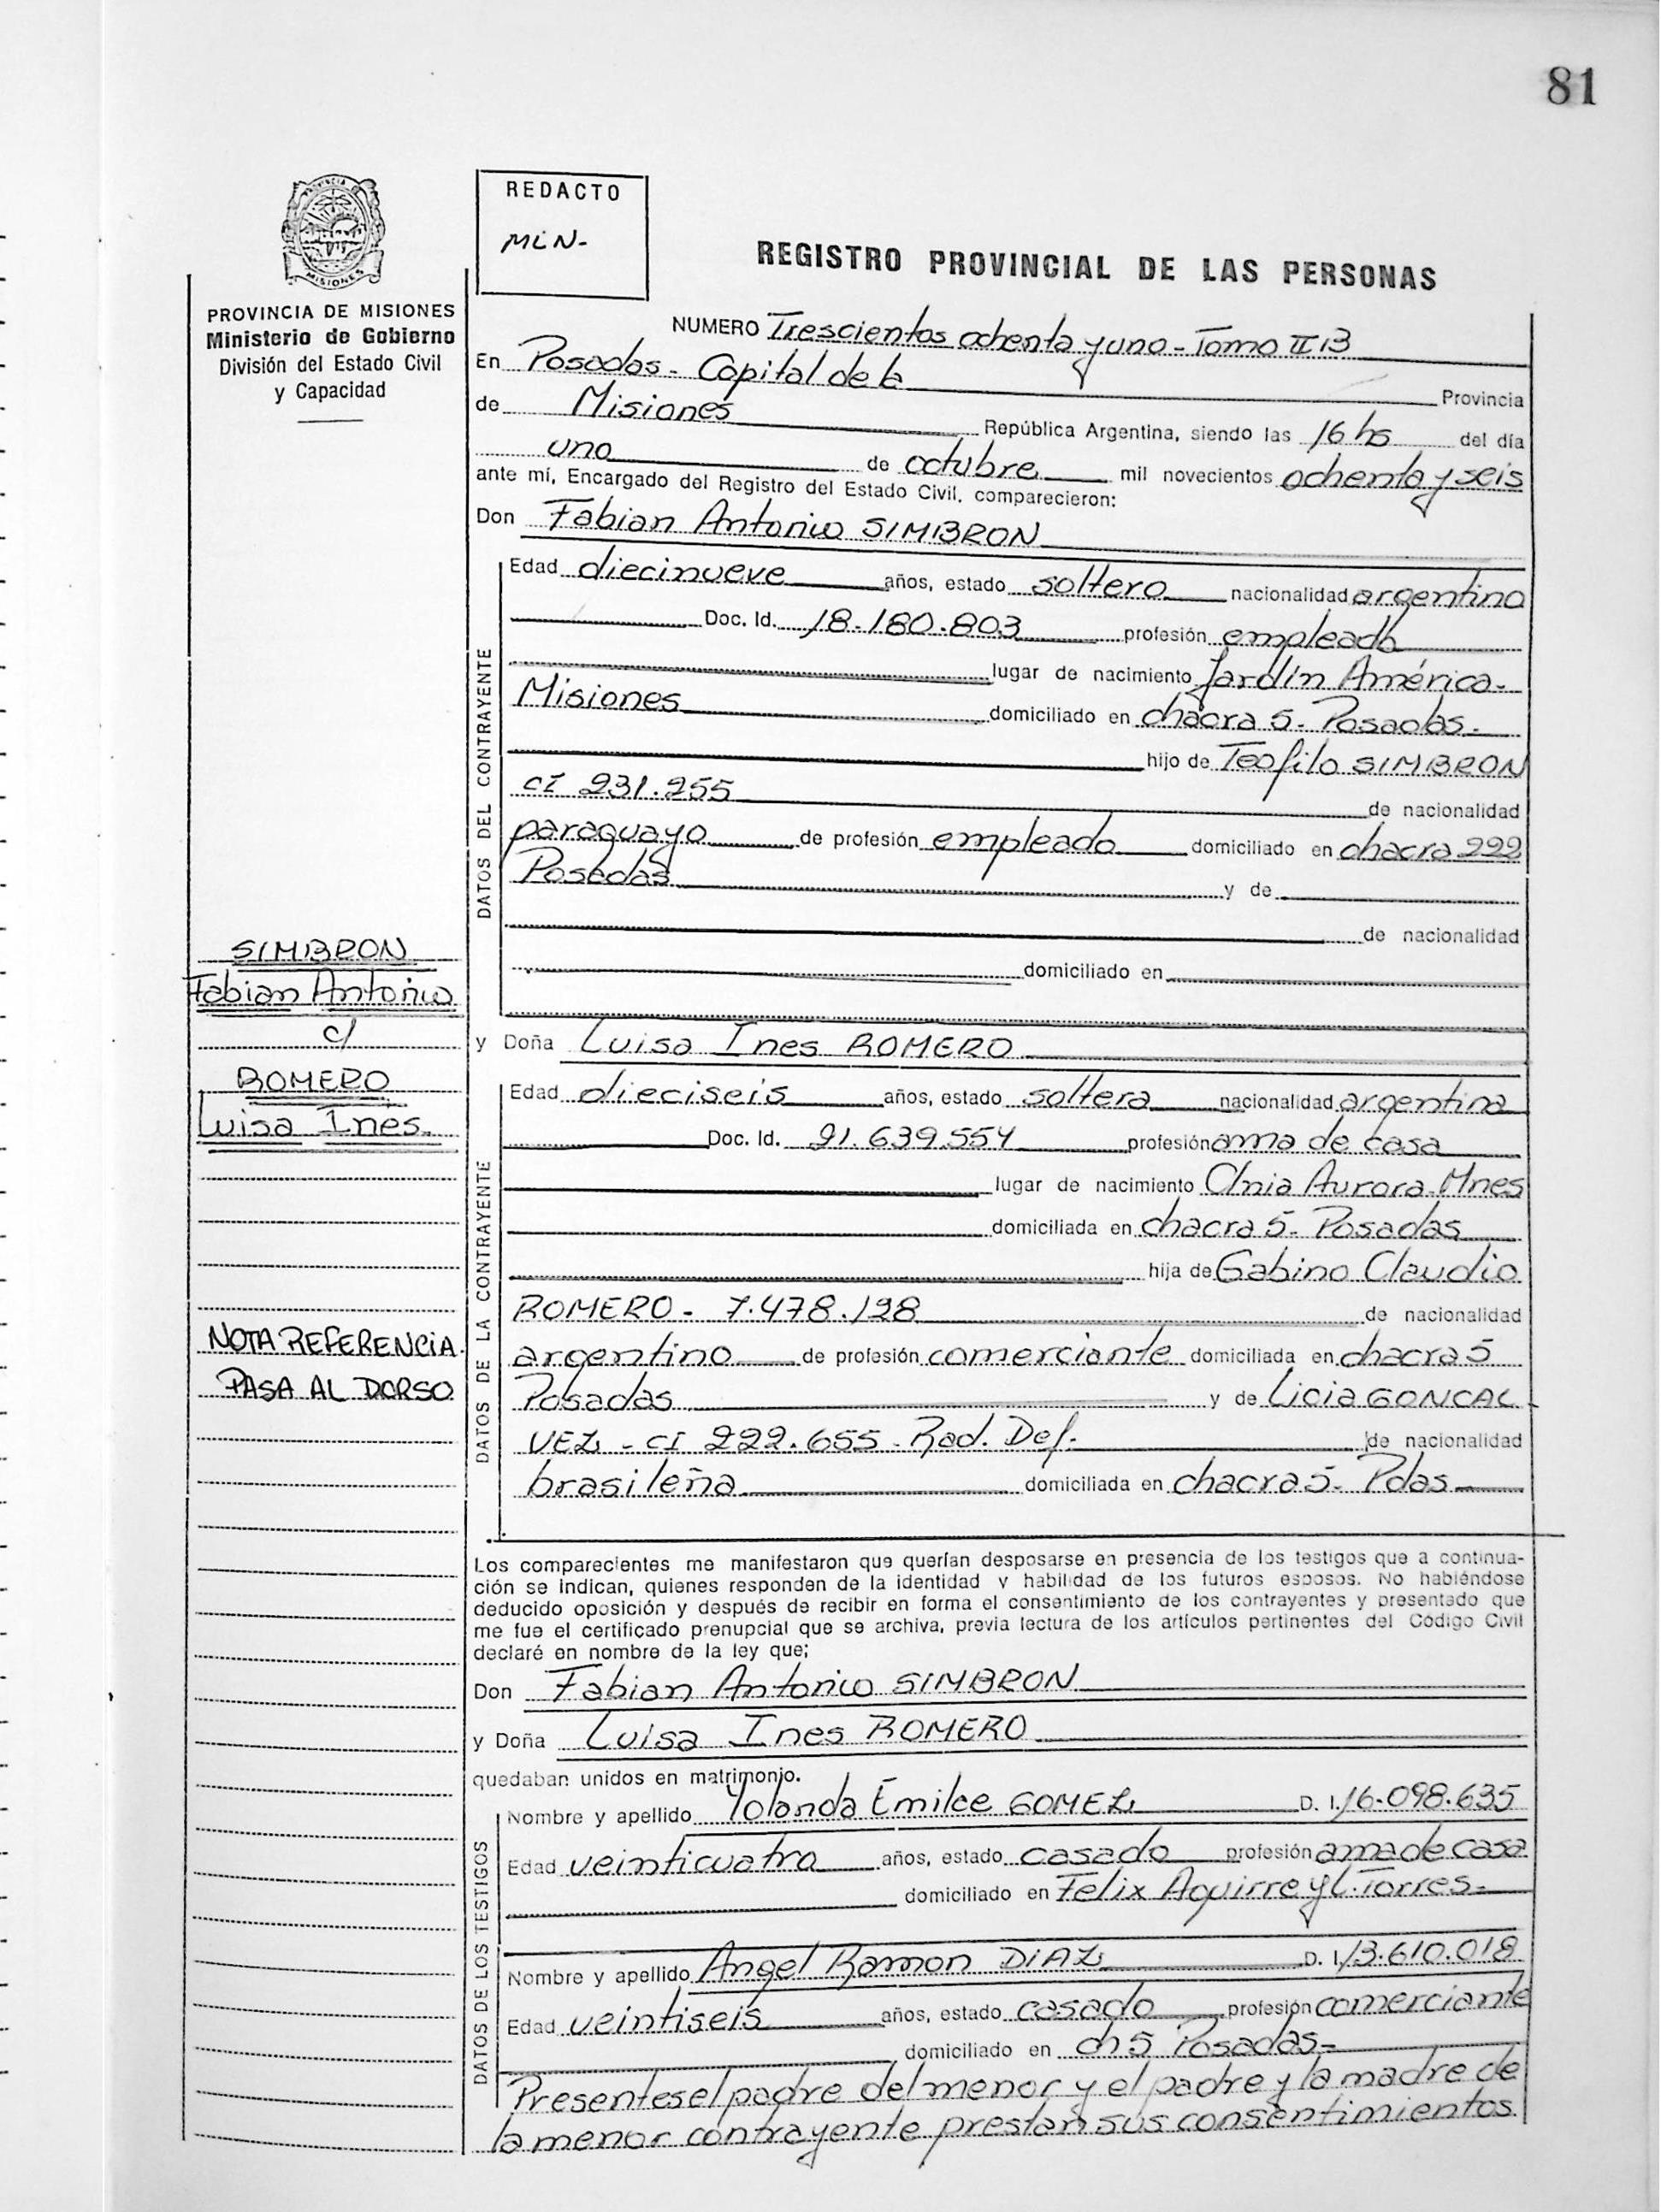 81
PROVINCIA DE
MISIONES
REDACTO
MiN-
REGISTRO PROVINCIAL DE LAS PERSONAS
PROVINCIA DE MISIONES
Ministerio de Gobierno
División del Estado Civil
y Capacidad
NUMERO Trescientos ochenta y uno - Tomo II B
En Posadas - Capital de la Provincia
de Misiones República Argentina, siendo las 16 hs del día
uno de octubre mil novecientos ochenta y seis
ante mí, Encargado del Registro del Estado Civil, comparecieron:
Don Fabian Antonio SIMBRON
DATOS DEL CONTRAYENTE
Edad diecinueve años, estado soltero nacionalidad argentino
Doc. Id. 18.180.803 profesión empleado
lugar de nacimiento Jardín América-
Misiones domiciliado en chacra 5 - Posadas -
hijo de Teofilo SIMBRON
CI 231.255 de nacionalidad
paraguayo de profesión empleado domiciliado en chacra 222
Posadas y de
de nacionalidad
domiciliado en
SIMBRON
Fabian Antonio
c/
ROMERO
Luisa Ines.
y Doña Luisa Ines ROMERO
DATOS DE LA CONTRAYENTE
Edad dieciseis años, estado soltera nacionalidad argentina
Doc. Id. 21.639.554 profesión ama de casa
lugar de nacimiento Clnia Aurora-Mnes
domiciliada en chacra 5 - Posadas
hija de Gabino Claudio
ROMERO - 7.478.128 de nacionalidad
argentino de profesión comerciante domiciliada en chacra 5
Posadas y de Licia GONCAL-
VEZ - CI 222.655 - Rad. Def. de nacionalidad
brasileña domiciliada en chacra 5 - Pdas
NOTA REFERENCIA
PASA AL DORSO
Los comparecientes me manifestaron que querían desposarse en presencia de los testigos que a continua-
ción se indican, quienes responden de la identidad y habilidad de los futuros esposos. No habiéndose
deducido oposición y después de recibir en forma el consentimiento de los contrayentes y presentado que
me fue el certificado prenupcial que se archiva, previa lectura de los artículos pertinentes del Código Civil
declaré en nombre de la ley que;
Don Fabian Antonio SIMBRON
y Doña Luisa Ines ROMERO
quedaban unidos en matrimonio.
DATOS DE LOS TESTIGOS
Nombre y apellido Yolanda Emilce GOMEZ D. I. 16.098.635
Edad veinticuatro años, estado casado profesión ama de casa
domiciliado en Felix Aguirre y L. Torres -
Nombre y apellido Angel Ramon DIAZ D. I. 13.610.018
Edad veintiseis años, estado casado profesión comerciante
domiciliado en ch 5 Posadas -
Presentes el padre del menor y el padre y la madre de
la menor contrayente prestan sus consentimientos.